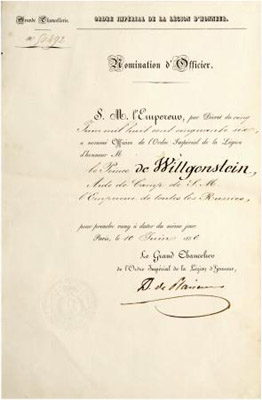 Grande Chancellerie.
ORDRE IMPÉRIAL DE LA LÉGION D'HONNEUR.
Nomination d'Officier.
S. M. l'Empereur, par Décret du cinq
Juin mil huit cent cinquante six,
a nommé Officier de l'Ordre Impérial de la Légion
d'honneur M.
le Prince de Wittgenstein,
Aide de Camp de S. M.
l'Empereur de toutes les Russies,
pour prendre rang à dater du même jour.
Paris, le 10 Juin 1856
Le Grand Chancelier
de l'Ordre Impérial de la Légion d'honneur,